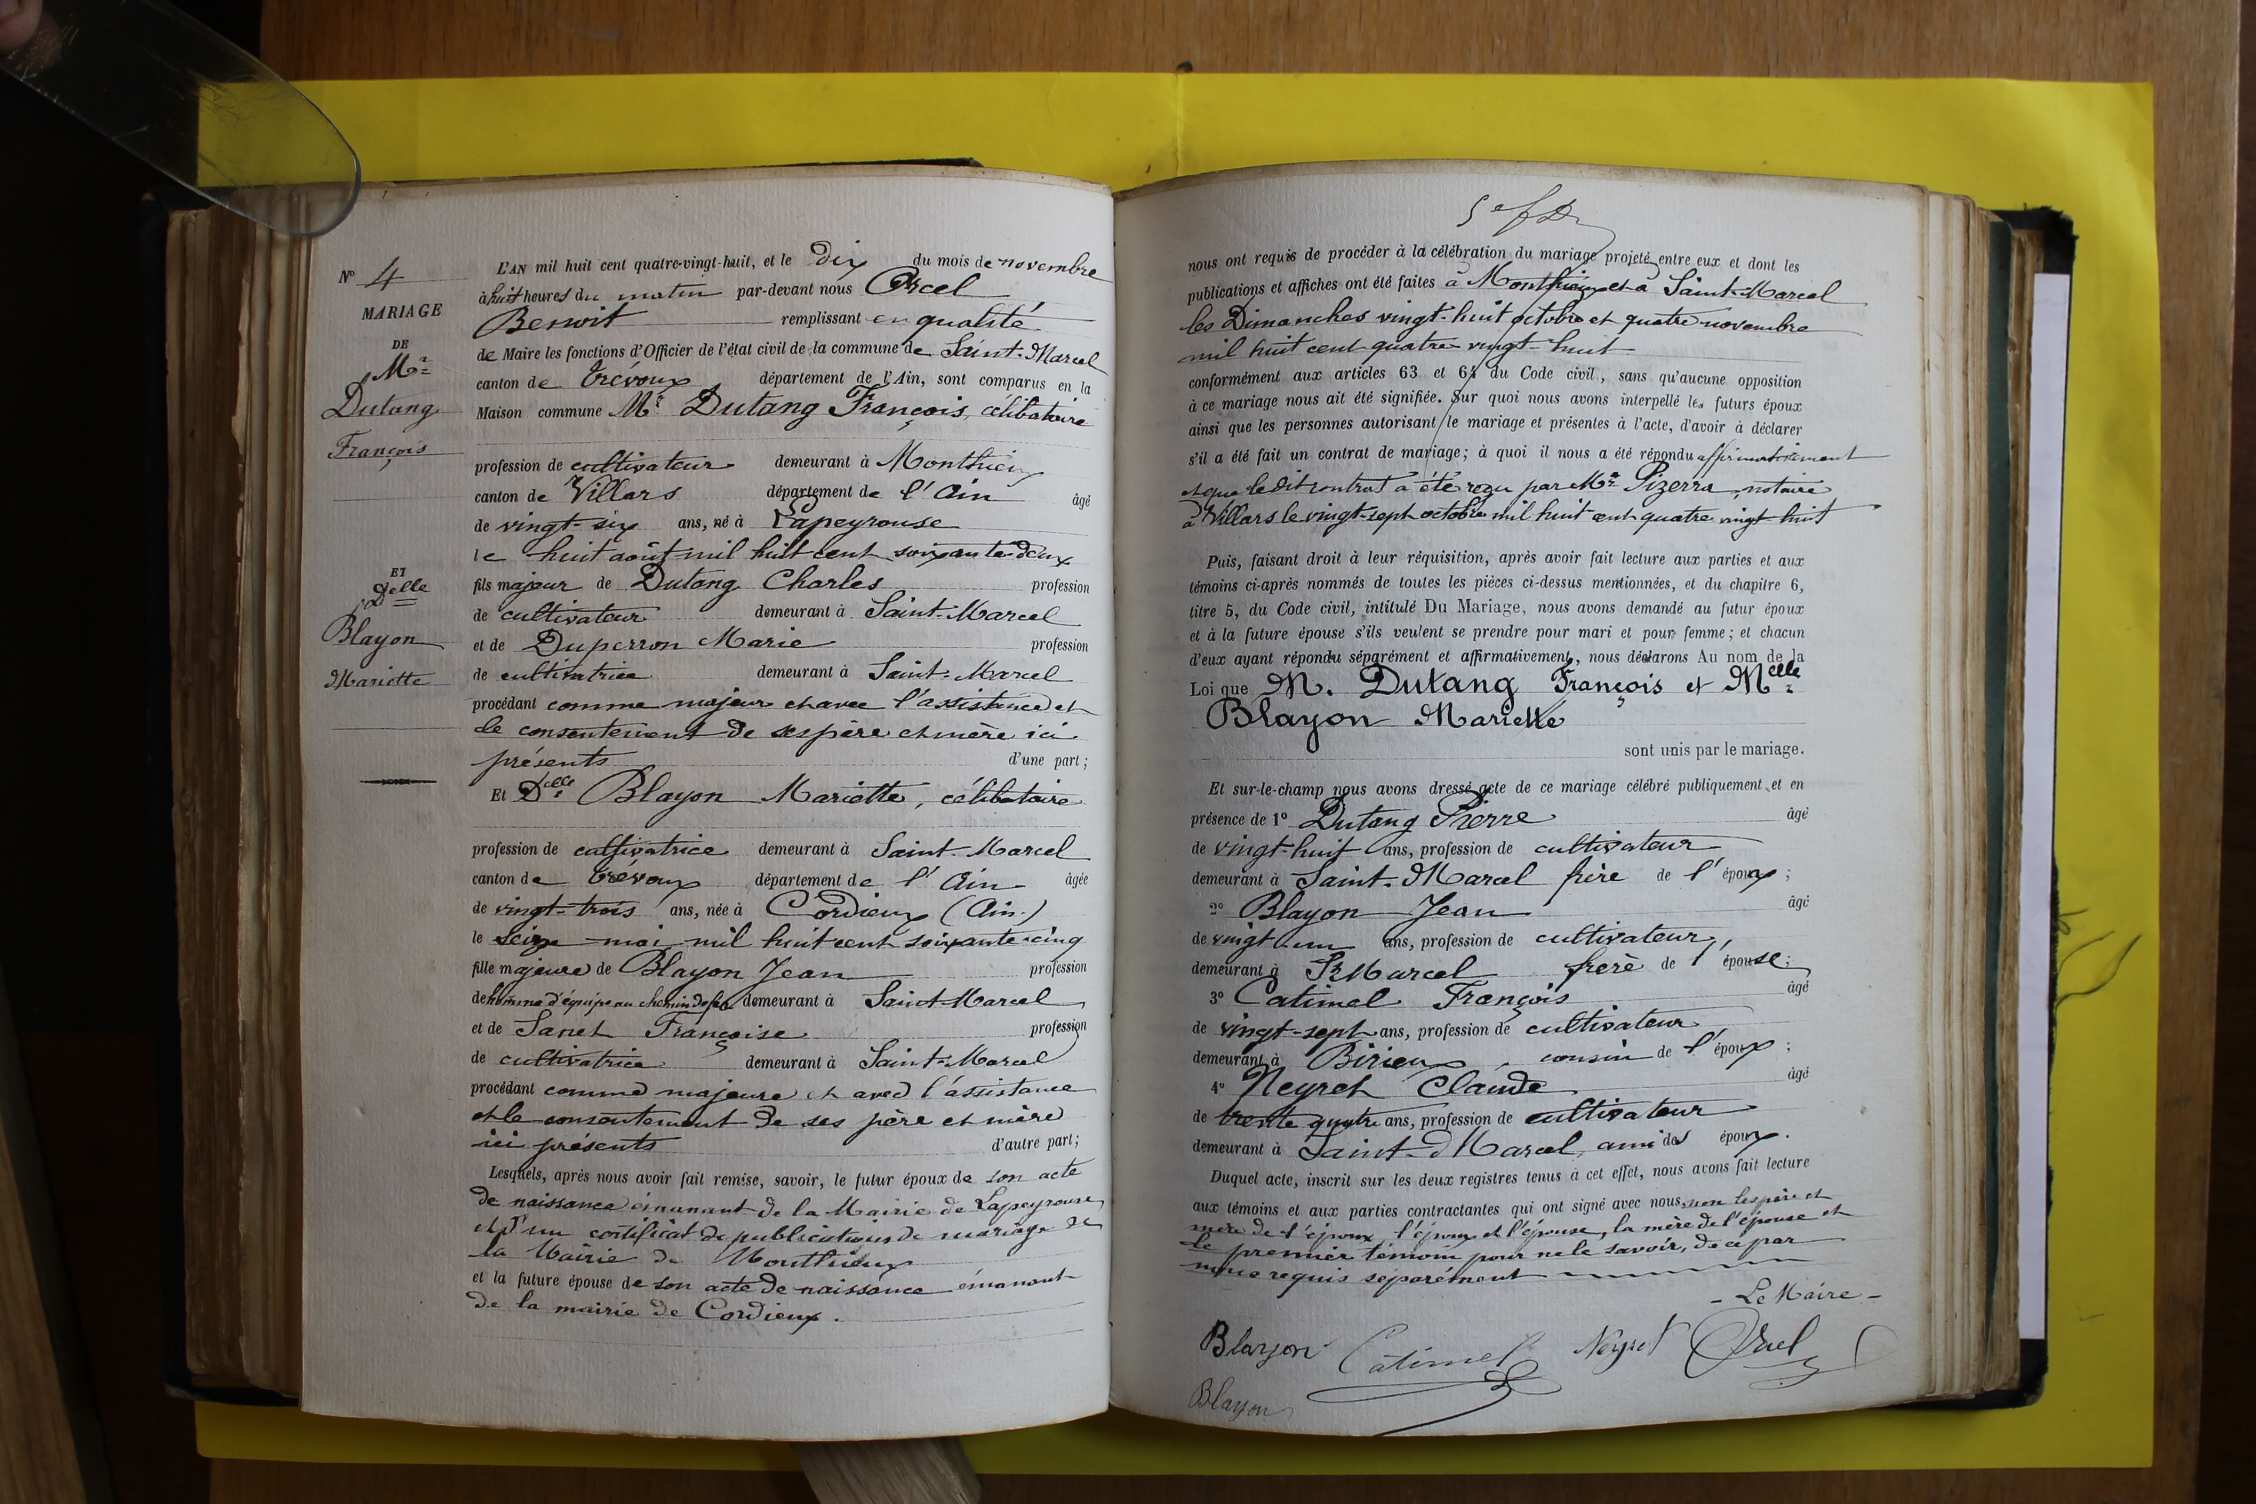 N° 4
MARIAGE
DE
Mr
Dutang
François
ET
Delle
Blayon
Mariette
L'AN mil huit cent quatre-vingt-huit, et le dix du mois de novembre
à huit heures du matin par-devant nous Orcel
Benoit remplissant en qualité
de Maire les fonctions d'Officier de l'état civil de la commune de Saint-Marcel
canton de Trévoux département de l'Ain, sont comparus en la
Maison commune Mr Dutang François, célibataire
profession de cultivateur demeurant à Monthieux
canton de Villars département de l'Ain âgé
de vingt-six ans, né à Lapeyrouse
le huit août mil huit cent soixante deux
fils majeur de Dutang Charles profession
de cultivateur demeurant à Saint-Marcel
et de Duperron Marie profession
de cultivatrice demeurant à Saint-Marcel
procédant comme majeur et avec l'assistance et
le consentement de ses père et mère ici
présents d'une part;
Et Delle Blayon Mariette, célibataire
profession de cultivatrice demeurant à Saint-Marcel
canton de Trévoux département de l'Ain âgée
de vingt-trois ans, née à Cordieux (Ain)
le seize mai mil huit cent soixante-cinq
fille majeure de Blayon Jean profession
de homme d'équipe au chemin de fer demeurant à Saint-Marcel
et de Sanet Françoise profession
de cultivatrice demeurant à Saint-Marcel
procédant comme majeure et avec l'assistance
et le consentement de ses père et mère
ici présents d'autre part;
Lesquels, après nous avoir fait remise, savoir, le futur époux de son acte
de naissance émanant de la Mairie de Lapeyrouse
et d'un certificat de publications de mariage de
la Mairie de Monthieux
et la future épouse de son acte de naissance émanant
de la mairie de Cordieux.
nous ont requis de procéder à la célébration du mariage projeté entre eux et dont les
publications et affiches ont été faites à Monthieux et à Saint-Marcel
les Dimanches vingt-huit octobre et quatre novembre
mil huit cent quatre vingt-huit
conformément aux articles 63 et 64 du Code civil, sans qu'aucune opposition
à ce mariage nous ait été signifiée. Sur quoi nous avons interpellé les futurs époux
ainsi que les personnes autorisant le mariage et présentes à l'acte, d'avoir à déclarer
s'il a été fait un contrat de mariage; à quoi il nous a été répondu affirmativement
et que le dit contrat a été reçu par Mr Pizerra, notaire
à Villars le vingt-sept octobre mil huit cent quatre vingt huit
Puis, faisant droit à leur réquisition, après avoir fait lecture aux parties et aux
témoins ci-après nommés de toutes les pièces ci-dessus mentionnées, et du chapitre 6,
titre 5, du Code civil, intitulé Du Mariage, nous avons demandé au futur époux
et à la future épouse s'ils veulent se prendre pour mari et pour femme; et chacun
d'eux ayant répondu séparément et affirmativement, nous déclarons Au nom de la
Loi que M. Dutang François et Melle
Blayon Mariette
sont unis par le mariage.
Et sur-le-champ nous avons dressé acte de ce mariage célébré publiquement et en
présence de 1° Dutang Pierre âgé
de vingt-huit ans, profession de cultivateur
demeurant à Saint-Marcel frère de l'époux;
2° Blayon Jean âgé
de vingt un ans, profession de cultivateur
demeurant à St Marcel frère de l'épouse;
3° Catimel François âgé
de vingt-sept ans, profession de cultivateur
demeurant à Birieux, cousin de l'époux;
4° Neyret Claude âgé
de trente quatre ans, profession de cultivateur
demeurant à Saint-Marcel, ami des époux.
Duquel acte, inscrit sur les deux registres tenus à cet effet, nous avons fait lecture
aux témoins et aux parties contractantes qui ont signé avec nous, non les père et
mère de l'époux, l'époux et l'épouse, la mère de l'épouse et
le premier témoin pour ne le savoir, de ce par
nous requis séparément
- Le Maire -
Blayon Catimel Neyret Orcel
Blayon